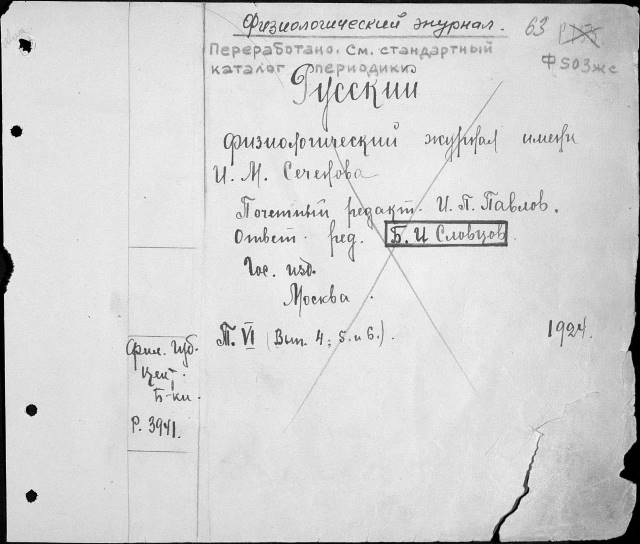 Физиологический журнал. 63
Переработано. См. стандартный
каталог периодики
Ф503жс
Русский
физиологический журнал имени
И. М. Сеченова
Почетный редакт. И. П. Павлов.
Ответ. ред. Б. И Словцов.
Гос. изд.
Москва.
Т. VI (Вып. 4; 5. и 6.). 1924.
Фил. Губ.
Цент.
Б-ки.
Р. 3941.